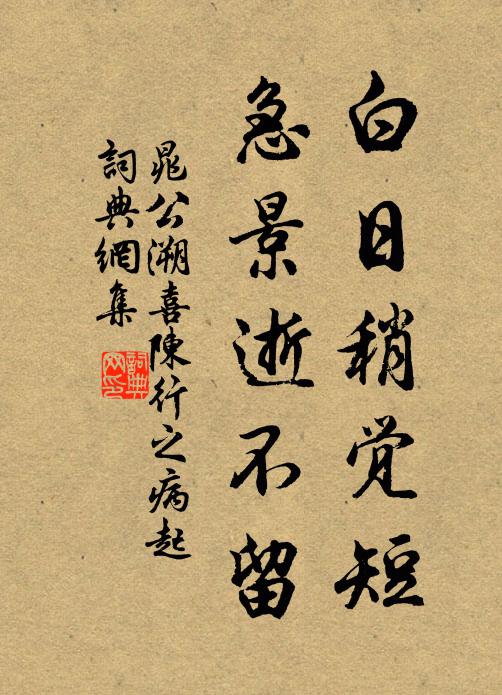 白日稍觉短
急景逝不留
晁公溯喜陳行之病起
詞典網集
詞典网印